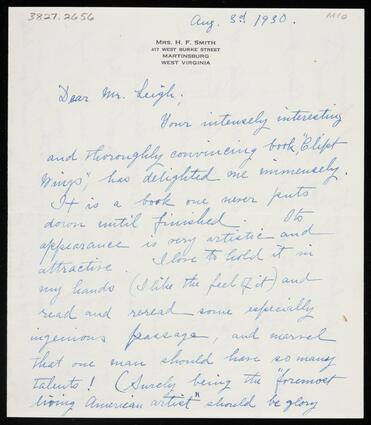 3827.2656
Aug. 3rd 1930.
M10
MRS. H. F. SMITH
417 WEST BURKE STREET
MARTINSBURG
WEST VIRGINIA
Dear Mr. Leigh;
Your intensely interesting
and thoroughly convincing book, "Clipt
Wings", has delighted me immensely.
It is a book one never puts
down until finished. Its
appearance is very artistic and
attractive. I love to hold it in
my hands (I like the feel of it) and
read and reread some especially
ingenious passage, and marvel
that one man should have so many
talents! (Surely being the "foremost
living American artist" should be glory